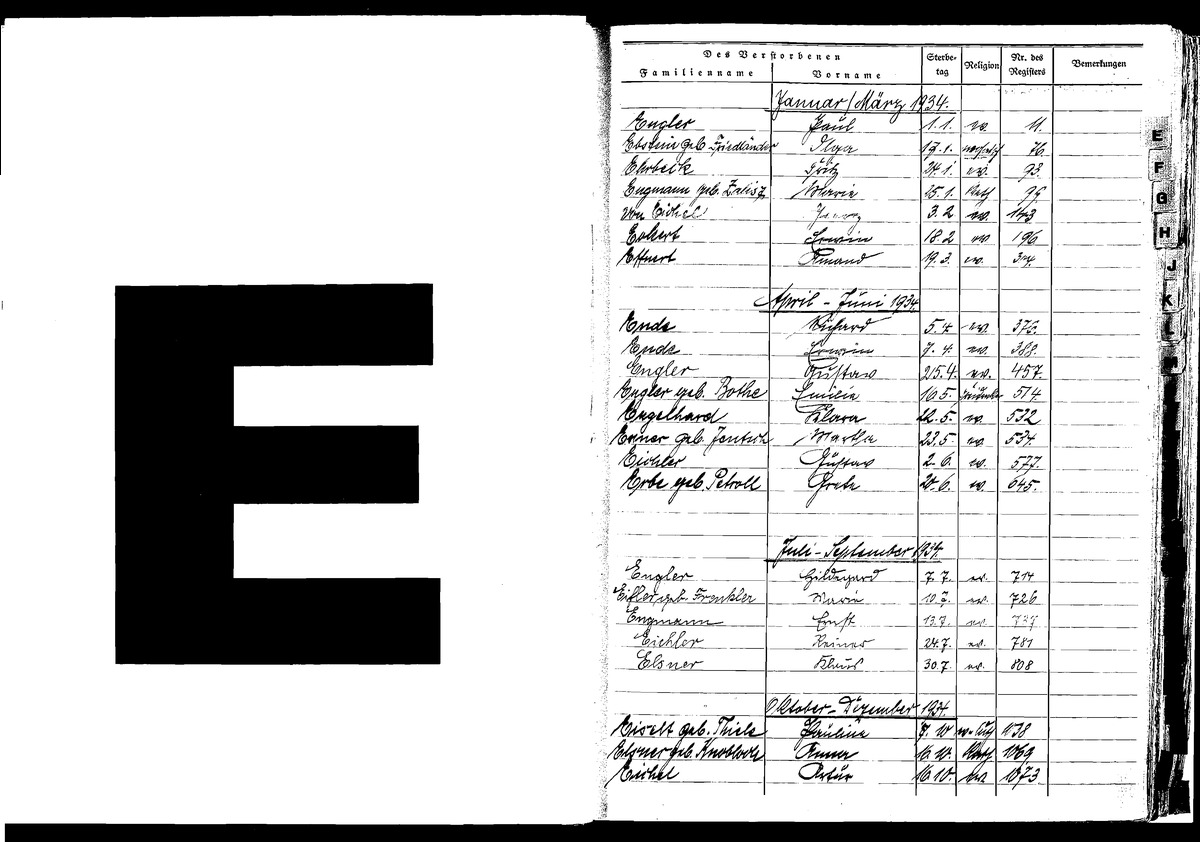 E
Des Verstorbenen
Familienname Vorname Sterbetag Religion Nr. des Registers Bemerkungen
Januar/März 1934.
Engler Paul 1.1. ev. 11.
Ebstein geb. Friedländer Olga 19.1. 76.
Ehrbeck Fritz 24.1. ev. 93.
Engmann geb. Marie 25.1. kath 99.
von Eichel 3.2 ev. 143
Eckert Erwin 18.2 ev 196
Effnert Amand 19.3. ev.
April - Juni 1934.
Ende Richard 5.4 ev. 376.
Ende Erwin 7.4. ev. 388.
Engler Gustav 25.4. ev. 457.
Engler geb. Bothe Emilie 16.5. 514
Engelhard Klara 22.5. ev. 532
Exner geb. Jentsch Martha 23.5. ev. 534.
Eichler Gustav 2.6. ev. 577.
Erbe geb. Petroll Grete 20.6. ev. 645.
Juli - September 1934.
Engler Hildegard 7.7. ev. 714
Eifler, geb. Frenkler Marie 10.7. ev. 726
Engmann Ernst 13.7. ev. 737
Eichler Reiner 24.7. ev. 781
Elsner Klaus 30.7. ev. 808
Oktober - Dezember 1934.
Eiselt geb. Thiele Pauline 7.10 ev.-luth 1038
Elsner geb. Knobloch Anna 16.10. kath 1069
Eichel Artur 16.10. ev 1073
E
F
G
H
J
K
L
M